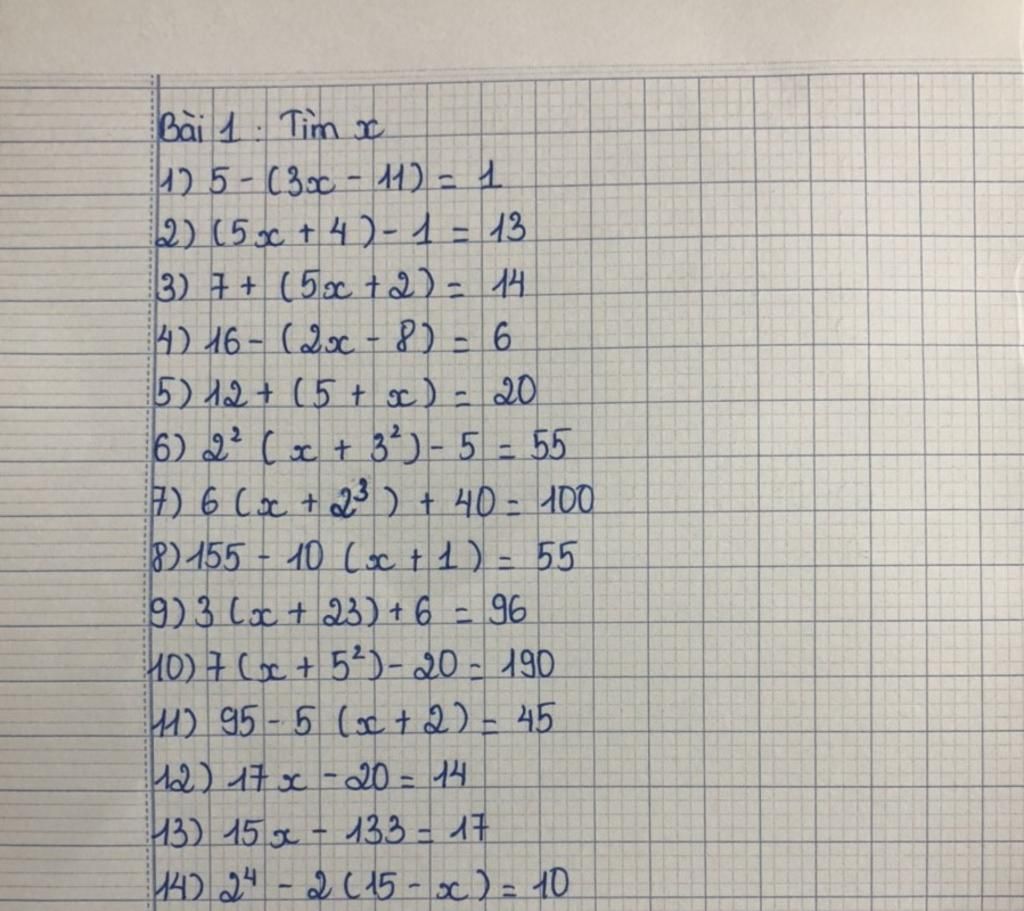 Bài 1 : Tìm x
1) 5 - (3x - 11) = 1
2) (5x + 4) - 1 = 13
3) 7 + (5x + 2) = 14
4) 16 - (2x - 8) = 6
5) 12 + (5 + x) = 20
6) 2² (x + 3²) - 5 = 55
7) 6 (x + 2³) + 40 = 100
8) 155 - 10 (x + 1) = 55
9) 3 (x + 23) + 6 = 96
10) 7 (x + 5²) - 20 = 190
11) 95 - 5 (x + 2) = 45
12) 17x - 20 = 14
13) 15x - 133 = 17
14) 2⁴ - 2 (15 - x) = 10